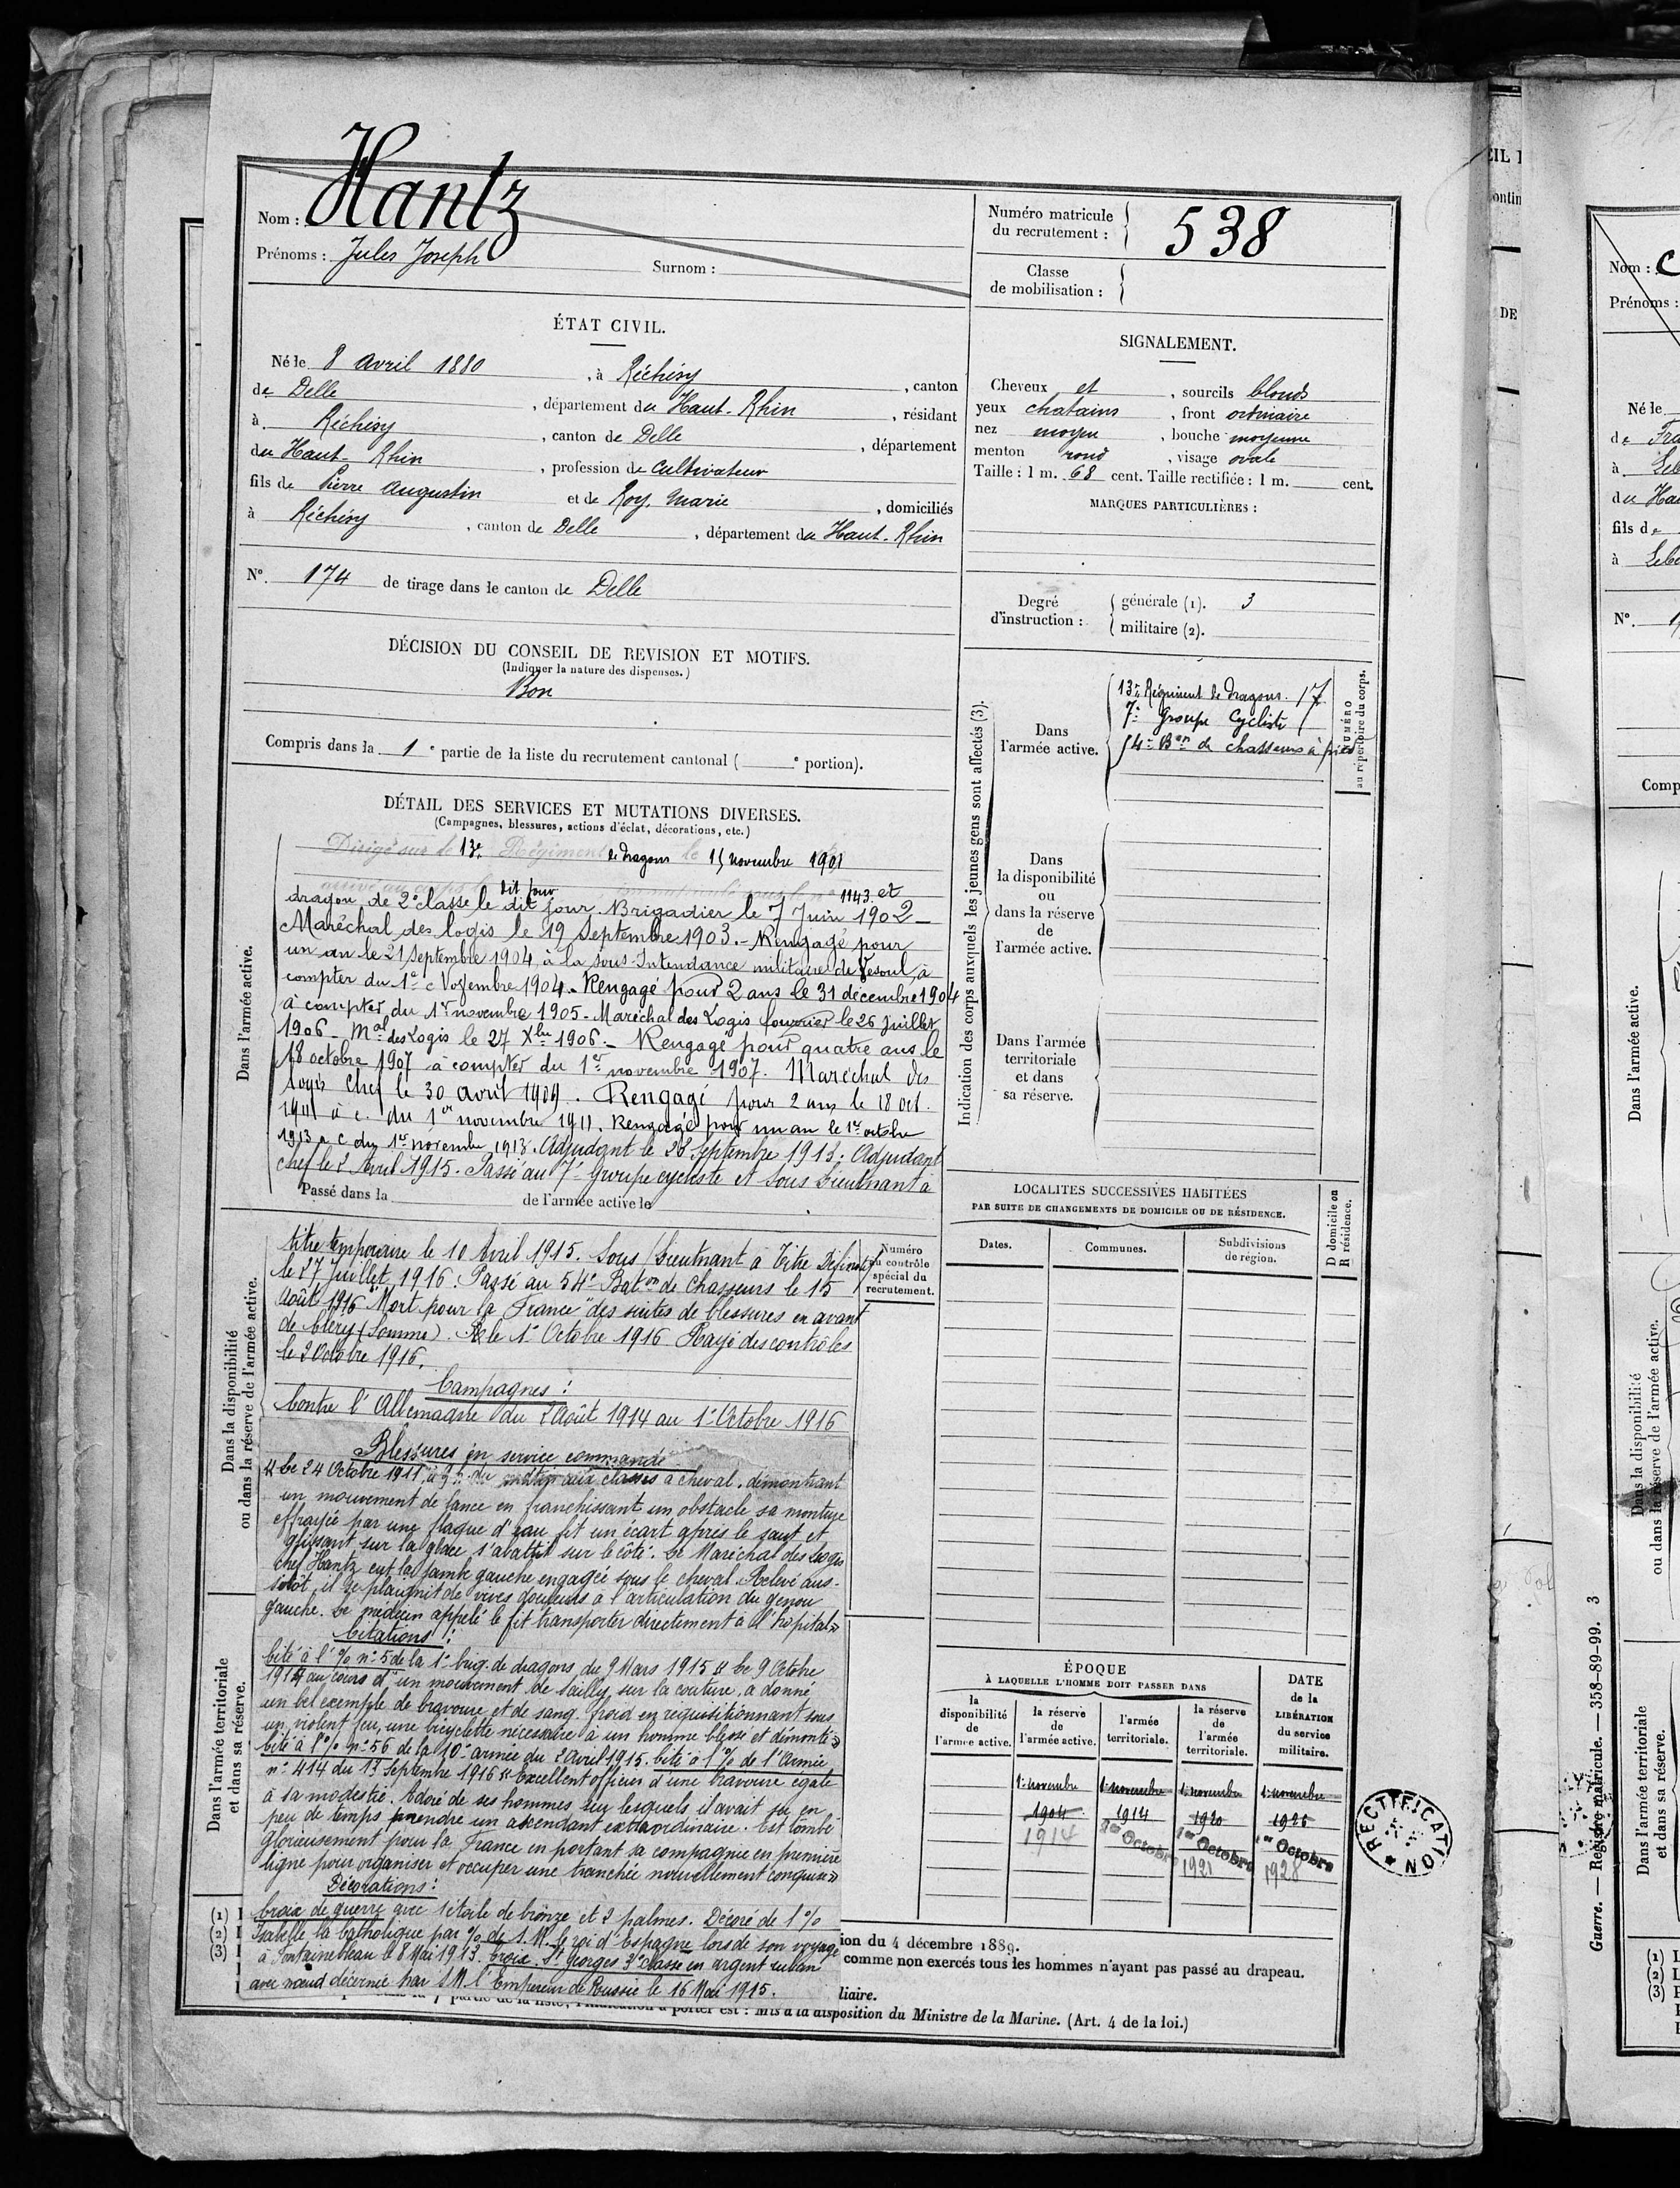 Nom : Hantz
Prénoms : Jules Joseph
Surnom :
Numéro matricule
du recrutement :
538
Classe
de mobilisation :
ÉTAT CIVIL.
Né le 8 avril 1880, à Réchésy, canton
de Delle, département du Haut-Rhin, résidant
à Réchésy, canton de Delle, département
du Haut-Rhin, profession de Cultivateur
fils de Pierre Augustin et de Roy, Marie, domiciliés
à Réchésy, canton de Delle, département du Haut-Rhin
N° 174 de tirage dans le canton de Delle
SIGNALEMENT.
Cheveux et, sourcils blonds
yeux chatains, front ordinaire
nez moyen, bouche moyenne
menton rond, visage ovale
Taille : 1 m. 68 cent. Taille rectifiée : 1 m. cent.
MARQUES PARTICULIÈRES :
Degré
d'instruction :
générale (1). 3
militaire (2).
DÉCISION DU CONSEIL DE REVISION ET MOTIFS.
(Indiquer la nature des dispenses.)
Bon
Compris dans la 1e partie de la liste du recrutement cantonal ( e portion).
DÉTAIL DES SERVICES ET MUTATIONS DIVERSES.
(Campagnes, blessures, actions d'éclat, décorations, etc.)
Dans l'armée active.
Dirigé sur le 13e Régiment de dragons le 15 novembre 1901
arrivé au corps le dit jour 1143. et
dragon de 2e classe le dit jour. Brigadier le 7 Juin 1902 -
Maréchal des logis le 19 Septembre 1903. - Rengagé pour
un an le 21 Septembre 1904 à la sous-Intendance militaire de Vesoul, à
compter du 1er Novembre 1904. Rengagé pour 2 ans le 31 décembre 1904
à compter du 1er novembre 1905. Maréchal des Logis fourrier le 26 Juillet
1906 - Mal des Logis le 27 Xbre 1906. - Rengagé pour quatre ans le
18 octobre 1907 à compter du 1er novembre 1907. Maréchal des
logis Chef le 30 avril 1909. Rengagé pour 2 ans le 18 oct.
1911 à c. du 1er novembre 1911. Rengagé pour un an le 1er octobre
1913 à c du 1er novembre 1913. Adjudant le 28 septembre 1913. Adjudant
chef le 2 Avril 1915. Passé au 7e Groupe cycliste et Sous Lieutnant à
Passé dans la de l'armée active le
Dans la disponibilité
ou dans la réserve de l'armée active.
titre temporaire le 10 Avril 1915. Sous Lieutnant à Titre Définitif
le 27 Juillet 1916. Passé au 54e Baton de Chasseurs le 15
Août 1916 "Mort pour la France" des suites de blessures en avant
de Cléry (Somme). le 1er Octobre 1916 Rayé des contrôles
le 2 Octobre 1916.
Campagnes :
Contre l'Allemagne du 2 Août 1914 au 1er Octobre 1916
Blessures en service commandé
« Le 24 Octobre 1911, à 9h du matin aux classes à cheval, démontrant
un mouvement de lance en franchissant un obstacle sa monture
effrayée par une flaque d'eau fit un écart après le saut et
glissant sur la glace s'abattit sur le côté. Le Maréchal des Logis
chef Hantz eut la jambe gauche engagée sous le cheval. Relevé aus-
sitôt, il se plaignit de vives douleurs à l'articulation du genou
gauche. Le médecin appelé le fit transporter directement à l'hôpital »
Dans l'armée territoriale
et dans sa réserve.
Citations :
Cité à l'% n° 5 de la 1e brig. de dragons, du 9 Mars 1915 « Le 9 Octobre
1914 au cours d'un mouvement de Sailly sur la couture, a donné
un bel exemple de bravoure et de sang-froid en requisitionnant sous
un violent feu, une bicyclette nécessaire à un homme blessé et démonté »
Cité à l'% n° 56 de la 10e armée du 2 Avril 1915. Cité à l'% de l'Armée
n° 414 du 13 Septembre 1916 « Excellent officier d'une bravoure égale
à sa modestie. Adoré de ses hommes sur lesquels il avait su en
peu de temps prendre un ascendant extraordinaire. Est tombé
Glorieusement pour la France en portant sa compagnie en première
ligne pour organiser et occuper une tranchée nouvellement conquise »
Décorations :
Croix de guerre avec 1 étoile de bronze et 2 palmes. Décoré de l'%
Isabelle la Catholique par % de S.M. le roi d'Espagne lors de son voyage
à Fontainebleau le 8 Mai 1913. Croix St Georges 3e classe en argent ruban
avec nœud décernée par S.M. l'Empereur de Russie le 16 Mai 1915.
(1)
(2)
(3)
Indication des corps auxquels les jeunes gens sont affectés (3).
NUMÉRO
au répertoire du corps.
Dans
l'armée active.
13e Régiment de dragons.
7e Groupe Cycliste
54e Bon de chasseurs à pied
Dans
la disponibilité
ou
dans la réserve
de
l'armée active.
Dans l'armée
territoriale
et dans
sa réserve.
Numéro
au contrôle
spécial du
recrutement.
LOCALITÉS SUCCESSIVES HABITÉES
PAR SUITE DE CHANGEMENTS DE DOMICILE OU DE RÉSIDENCE.
Dates.
Communes.
Subdivisions
de région.
D domicile ou
R résidence.
ÉPOQUE
À LAQUELLE L'HOMME DOIT PASSER DANS
la
disponibilité
de
l'armée active.
la réserve
de
l'armée active.
l'armée
territoriale.
la réserve
de
l'armée
territoriale.
DATE
de la
LIBÉRATION
du service
militaire.
1er novembre 1er novembre 1er novembre 1er novembre
1904 1914 1920 1926
1914 1er Octobre 1er Octobre 1er Octobre
1921 1928
RECTIFICATION
ion du 4 décembre 1889.
comme non exercés tous les hommes n'ayant pas passé au drapeau.
liaire.
partie de la liste, l'indication à porter est : Mis à la disposition du Ministre de la Marine. (Art. 4 de la loi.)
EIL
DE
Nom : C
Prénoms :
Né le
de
à
du Ha
fils de
à
N°
Comp
Dans l'armée active.
Dans la disponibilité
ou dans la réserve de l'armée active.
Dans l'armée territoriale
et dans sa réserve.
Guerre. — Registre matricule. — 358-89-99. 3
(1) L
(2) L
(3)